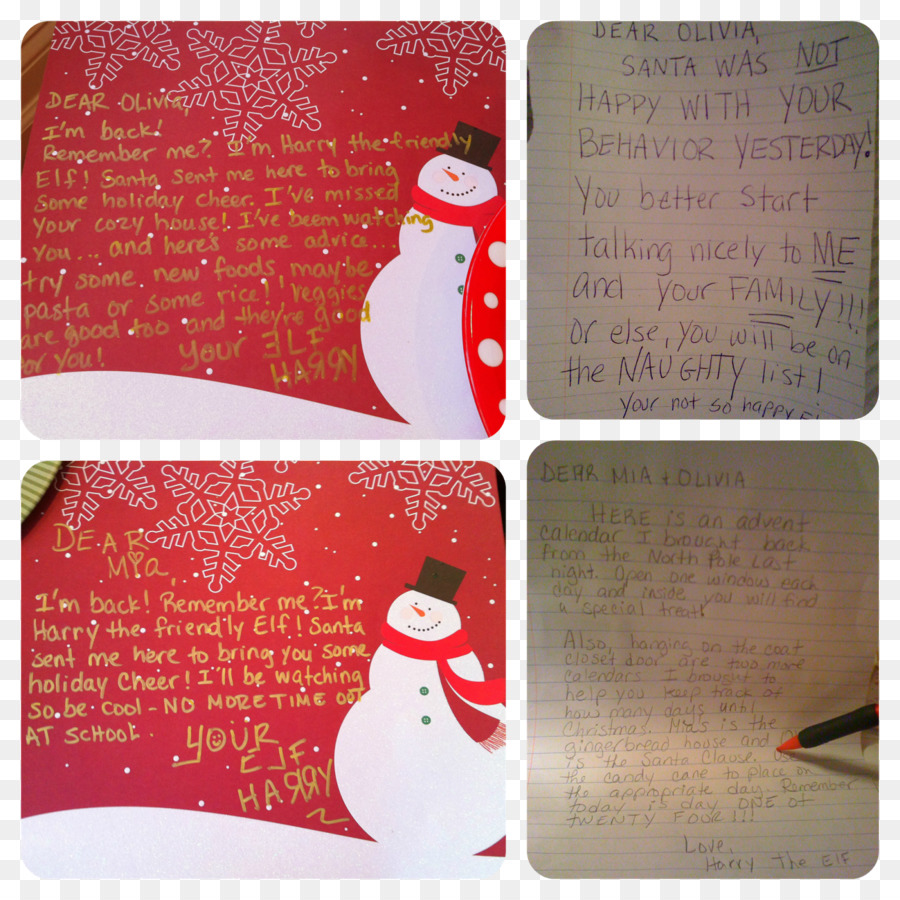 DEAR OLIVIA,
I'm back!
Remember me? I'm Harry the friendly
Elf! Santa sent me here to bring
some holiday cheer. I've missed
your cozy house! I've been watching
you... and here's some advice...
try some new foods, maybe
pasta or some rice!! Veggies
are good too and they're good
for you!
Your ELF
HARRY
DEAR OLIVIA,
SANTA WAS NOT
HAPPY WITH YOUR
BEHAVIOR YESTERDAY!
You better start
talking nicely to ME
and your FAMILY!!!
or else, you will be on
the NAUGHTY list!
Your not so happy
DEAR
Mia,
I'm back! Remember me? I'm
Harry the friendly Elf! Santa
sent me here to bring you some
holiday cheer! I'll be watching
so be cool - NO MORE TIME OUT
AT SCHOOL.
YOUR
ELF
HARRY
DEAR MIA + OLIVIA
HERE is an advent
calendar I brought back
from the North Pole Last
night. Open one window each
day and inside you will find
a special treat!
Also, hanging on the coat
closet door are two more
calendars I brought to
help you keep track of
how many days until
Christmas. Mia's is the
gingerbread house and
is the Santa Clause. Use
the candy cane to place on
the appropriate day. Remember
today is day ONE of
TWENTY FOUR!!!
Love,
Harry the Elf